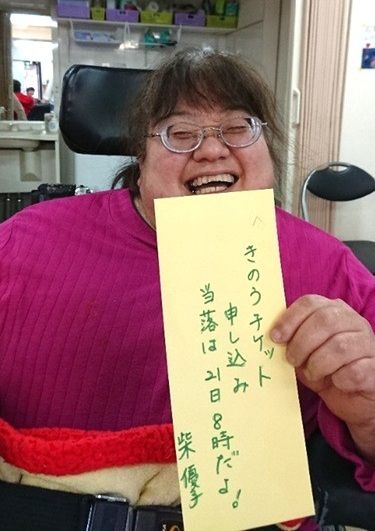 きのうチケット
申し込み
当落は21日8時だよ!
柴優子